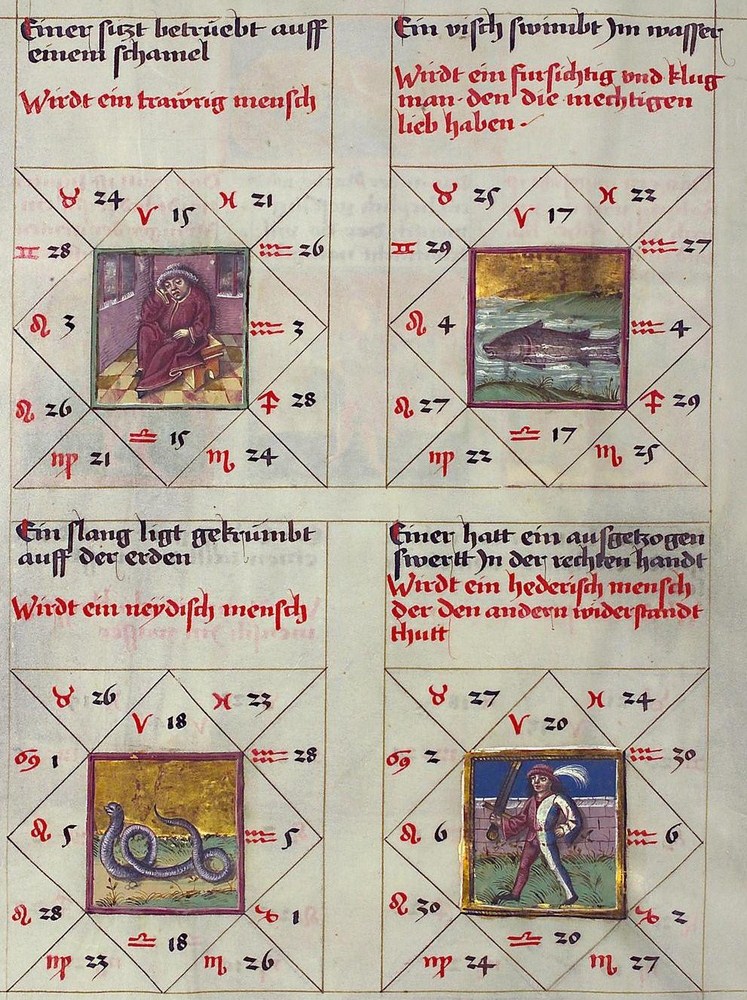 Einer sitzt betrüebt auff
einem schamel
Wirdt ein trawrig mensch
♉ 24
♈ 15
♓ 21
♊ 28
♒ 26
♌ 3
♒ 3
♌ 26
♐ 28
♍ 21
♎ 15
♏ 24
Ein visch swimbt Jm wasser
Wirdt ein fursichtig vnd klug
man den die mechtigen
lieb haben
♉ 25
♈ 17
♓ 22
♊ 29
♒ 27
♌ 4
♒ 4
♌ 27
♐ 29
♍ 22
♎ 17
♏ 25
Ein slang ligt gekrümbt
auff der erden
Wirdt ein neydisch mensch
♉ 26
♈ 18
♓ 23
♋ 1
♒ 28
♌ 5
♒ 5
♌ 28
♑ 1
♍ 23
♎ 18
♏ 26
Einer hatt ein ausgetzogen
swertt Jn der rechten handt
Wirdt ein hederisch mensch
der den andern widerstandt
thutt
♉ 27
♈ 20
♓ 24
♋ 2
♒ 30
♌ 6
♒ 6
♌ 30
♑ 2
♍ 24
♎ 20
♏ 27